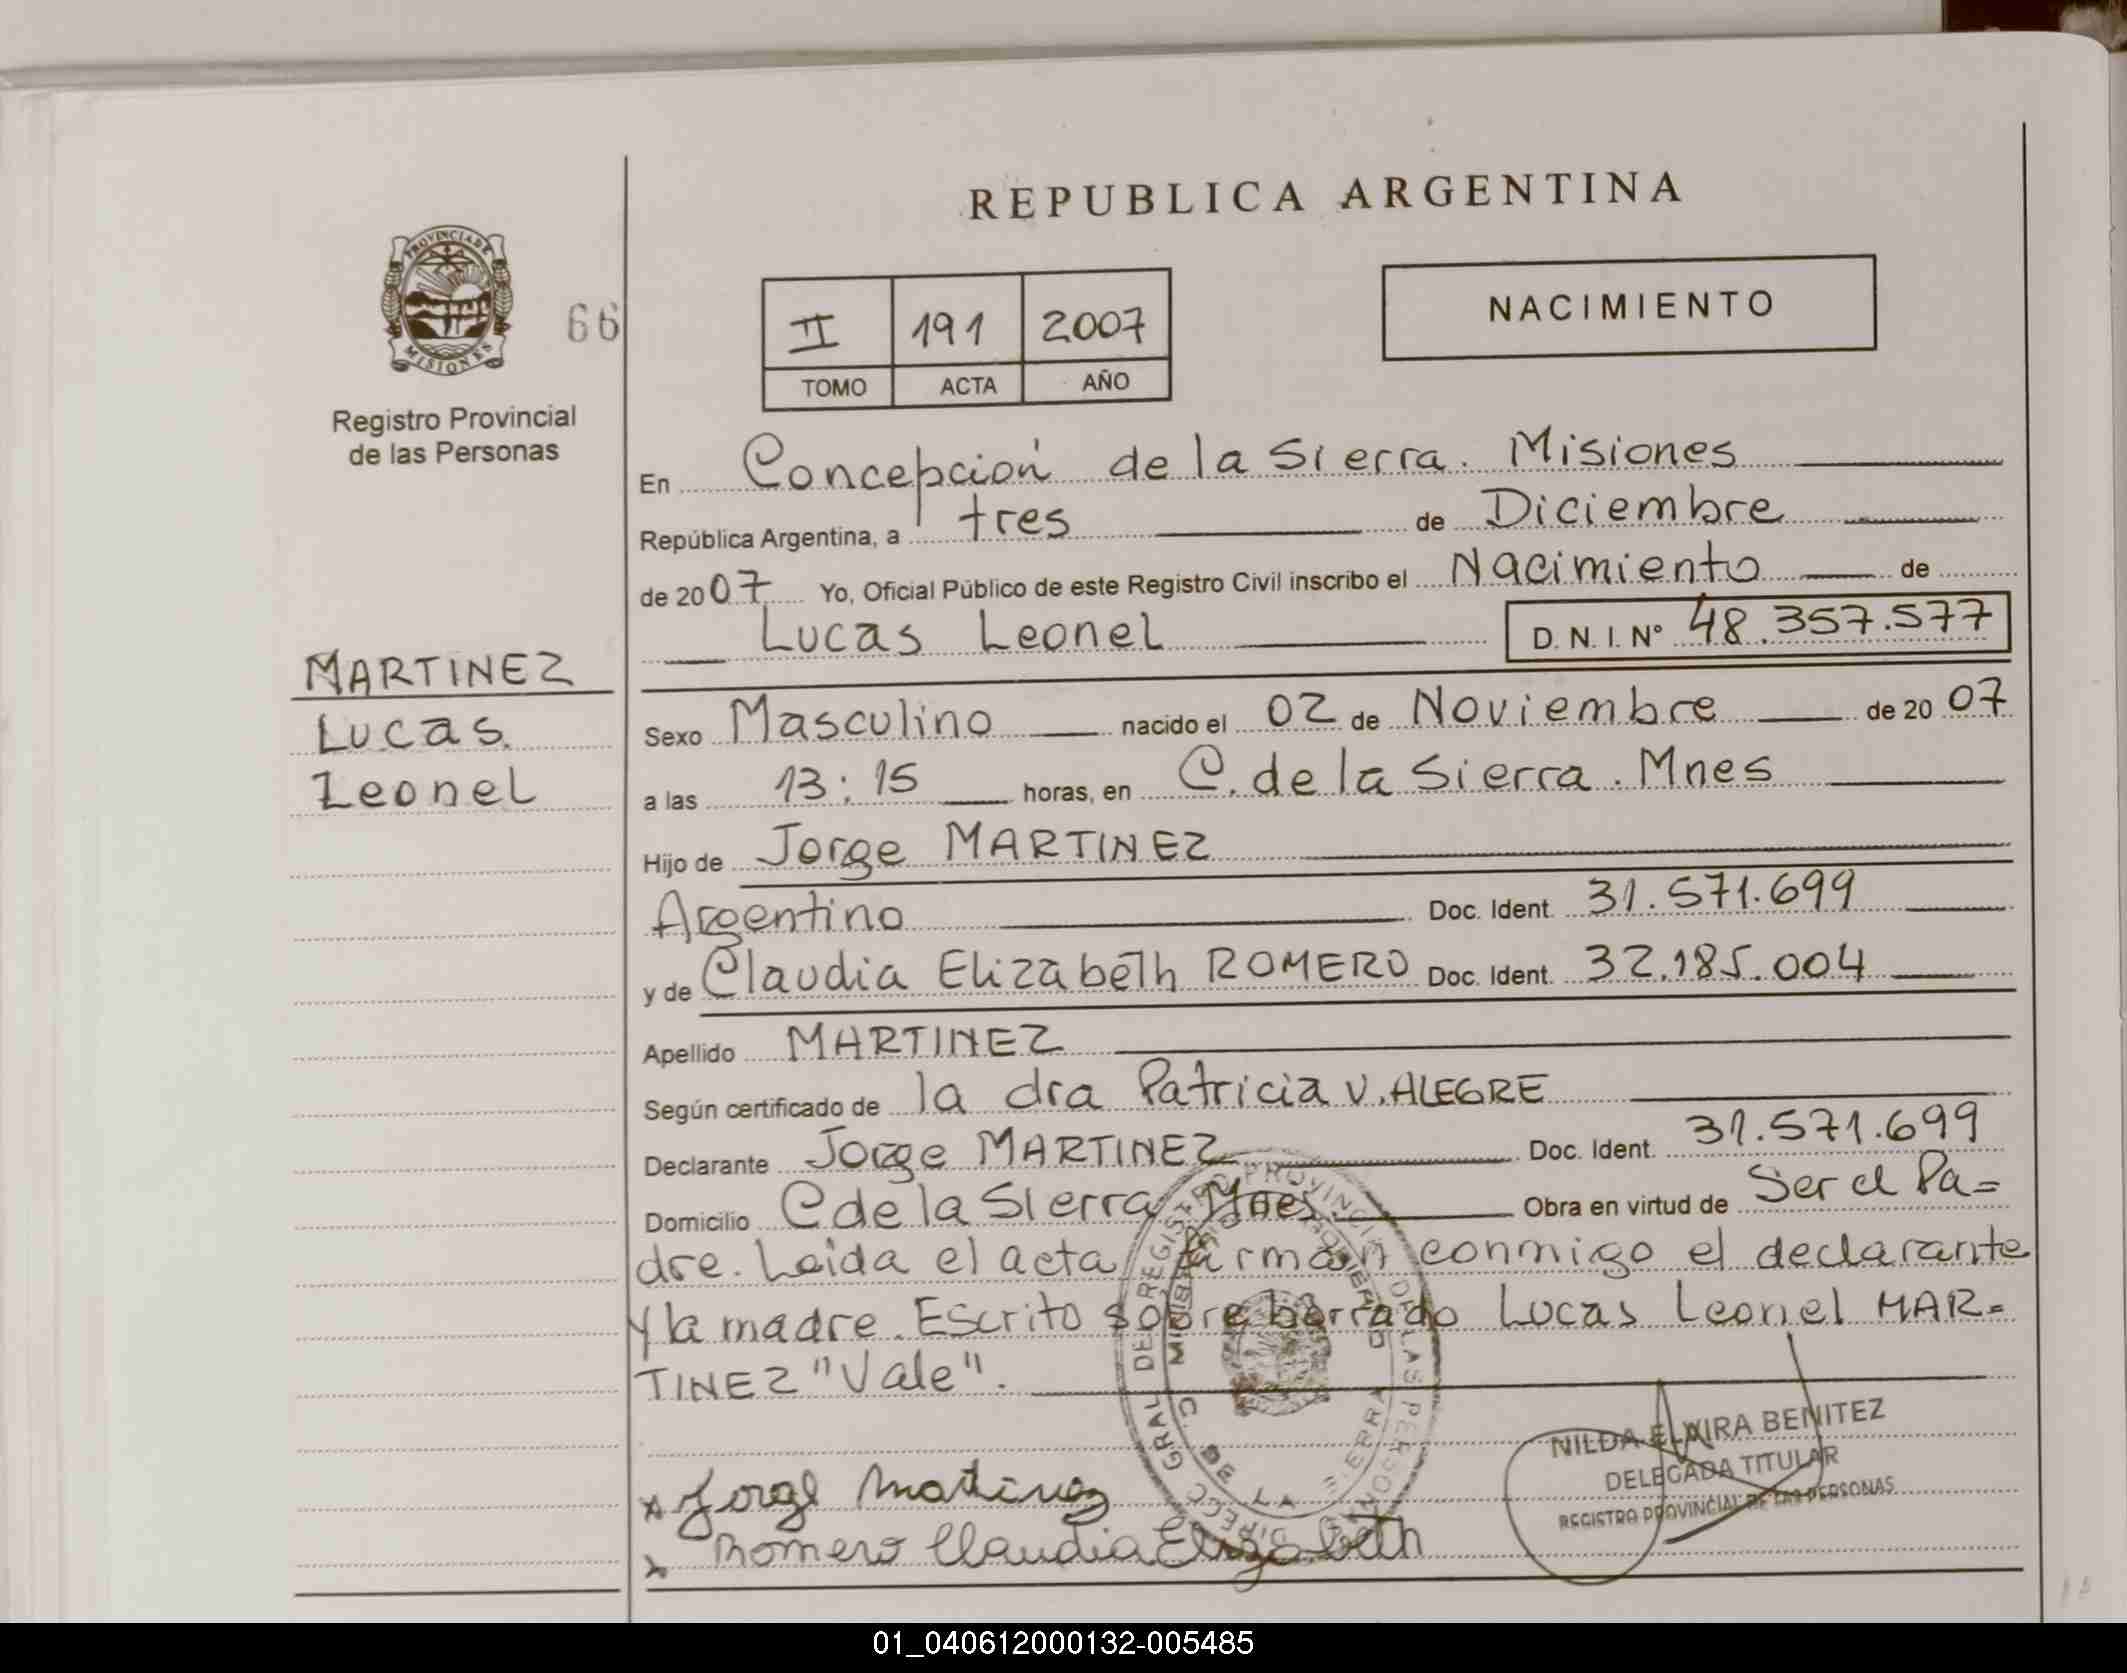 REPUBLICA ARGENTINA
PROVINCIA DE MISIONES
66
Registro Provincial
de las Personas
II 191 2007
TOMO ACTA AÑO
NACIMIENTO
En Concepción de la Sierra. Misiones
República Argentina, a tres de Diciembre
de 2007 Yo, Oficial Público de este Registro Civil inscribo el Nacimiento de
Lucas Leonel D.N.I. Nº 48.357.577
MARTINEZ
Lucas
Leonel
Sexo Masculino nacido el 02 de Noviembre de 2007
a las 13:15 horas, en C. de la Sierra. Mnes
Hijo de Jorge MARTINEZ
Argentino Doc. Ident. 31.571.699
y de Claudia Elizabeth ROMERO Doc. Ident. 32.185.004
Apellido MARTINEZ
Según certificado de la dra Patricia V. ALEGRE
Declarante Jorge MARTINEZ Doc. Ident. 31.571.699
Domicilio C de la Sierra Mnes. Obra en virtud de Ser el Pa=
dre. Leida el acta firman conmigo el declarante
y la madre. Escrito sobre borrado Lucas Leonel MAR=
TINEZ "Vale".
NILDA ELVIRA BENITEZ
DELEGADA TITULAR
REGISTRO PROVINCIAL DE LAS PERSONAS
x Jorge Martinez
x Romero Claudia Elizabeth
DIRECC GRAL DE REGISTRO PROVINCIAL DE LAS PERSONAS
C. DE LA SIERRA
01_040612000132-005485